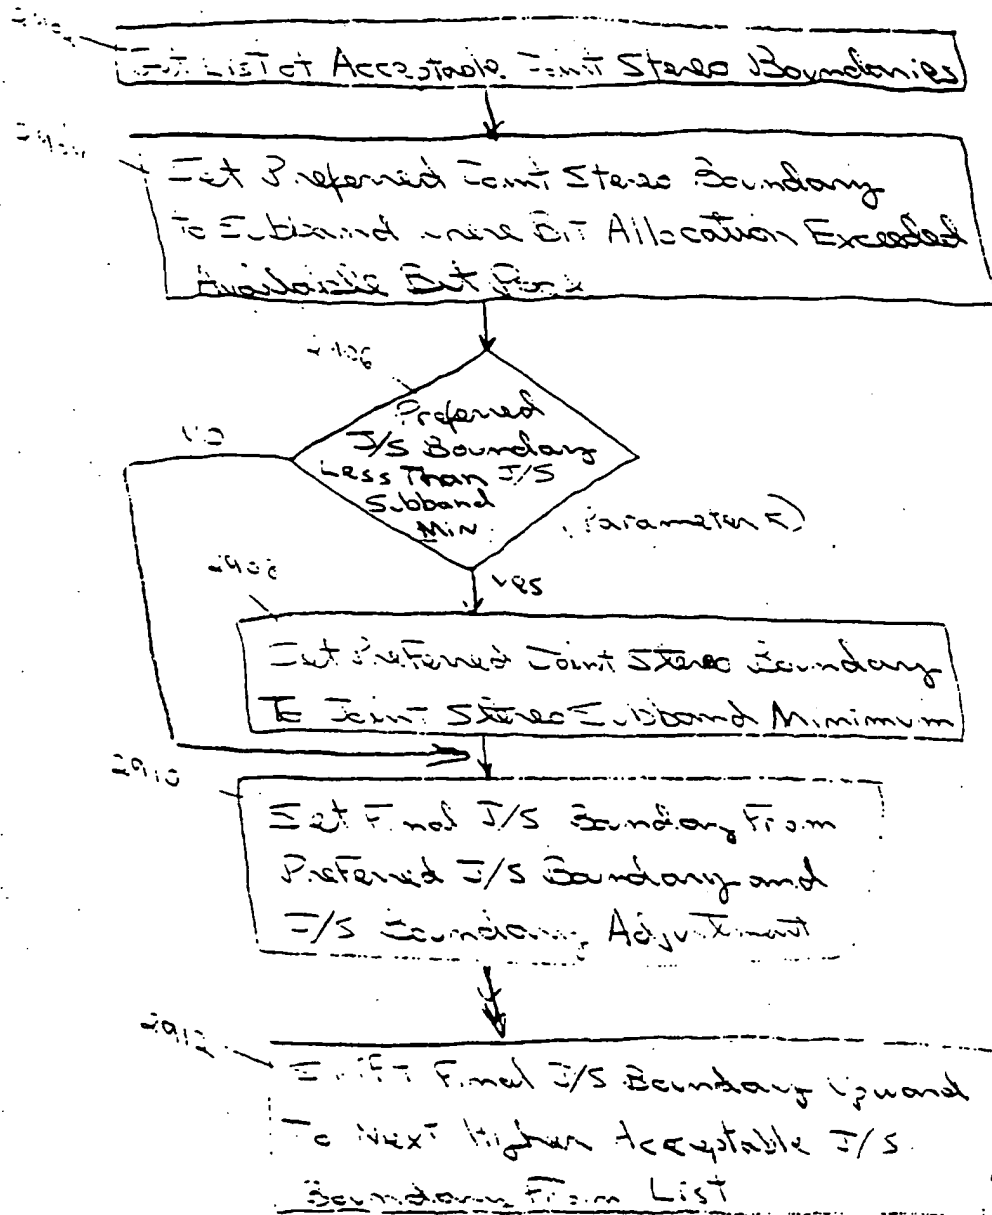 List of Acceptable Joint Stereo Boundaries
Set Preferred Joint Stereo Boundary
To Subband where Bit Allocation Exceeded
Available Bit Pool
2906
Preferred
J/S Boundary
Less Than J/S
Subband
Min
(Parameter K)
NO
yes
2908
Set Preferred Joint Stereo Boundary
To Joint Stereo Subband Minimum
2910
Set Final J/S Boundary From
Preferred J/S Boundary and
J/S Boundary Adjustment
2912
Shift Final J/S Boundary Upward
To Next Higher Acceptable J/S
Boundary From List